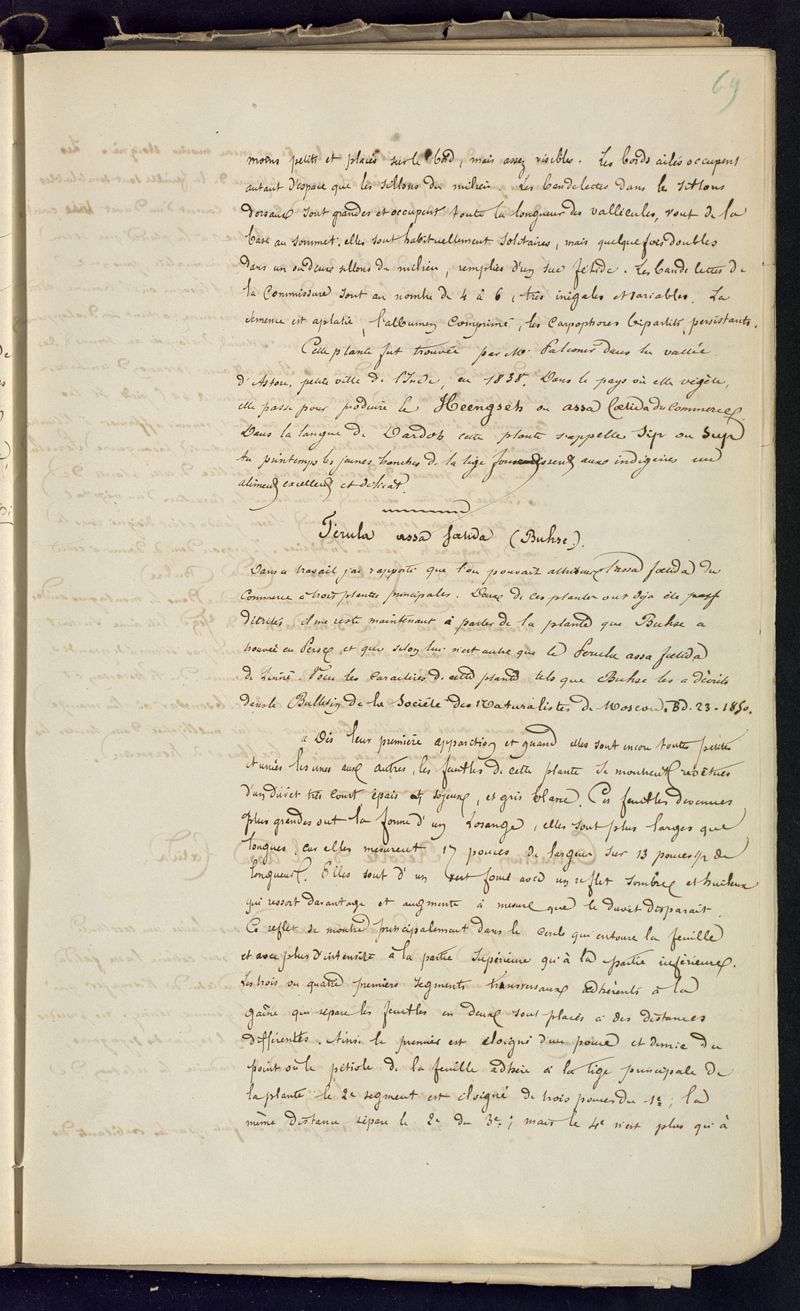 69
moins petits et placés sur le bord, mais assez visibles. Les bords ailés occupent
autant d'espace que les sillons du milieu. Les bandelettes dans les sillons
dorsaux sont grandes et occupent toute la longueur des vallécules, vont de la
base au sommet; elles sont habituellement solitaires, mais quelquefois doubles
dans un ou deux sillons du milieu, remplies d'un suc fétide. Les bandelettes de
la Commissure sont au nombre de 4 à 6, très inégales et variables. La
semence est aplatie, l'albumen comprimé, les Carpophores bipartits, persistants.
Cette plante fut trouvée par Mr. Falconer dans la vallée
d'Astore, petite ville de l'Inde, en 1838. Dans le pays où elle végète,
elle passe pour produire le Heengseh ou assa foetida du Commerce.
Dans la langue de Dardoh cette plante s'appelle Sip ou Sup
Au printemps les jeunes branches de la tige fournissent aux indigènes un
aliment excellent et délicat.
Férula assa foetida (Buhse).
Dans ce travail j'ai rapporté que l'on pouvait attribuer l'assa foetida du
Commerce à trois plantes principales. Deux de ces plantes ont déjà été
décrites, il me reste maintenant à parler de la plante que Buhse a
trouvée en Perse et qui selon lui n'est autre que le Ferula assa foetida
de Linné. Voici les caractères de cette plante tels que Buhse les a décrits
dans le Bulletin de la Société des Naturalistes de Moscou. Bd. 23. 1850.
Dès leur première apparition et quand elles sont encore toutes petites
et unies les unes aux autres, les feuilles de cette plante se montrent revêtues
d'un duvet très court épais et soyeux, et gris blanc. Ces feuilles devenues
plus grandes ont la forme d'un Losange, elles sont plus larges que
longues, car elles mesurent 17 pouces de largeur sur 13 pouces 1/2 de
longueur. Elles sont d'un vert foncé avec un reflet sombre et huileux
qui ressort davantage et augmente à mesure que le duvet disparait.
Ce reflet se montre principalement dans le cercle qui entoure la feuille
et avec plus d'intensité à la partie supérieure qu'à la partie inférieure.
Les trois ou quatre premiers segments transversaux adhérents à la
gaîne qui sépare les feuilles en deux sont placés à des distances
différentes. Ainsi le premier est éloigné d'un pouce et demie du
point où le pétiole de la feuille adhère à la tige principale de
la plante le 2e segment est éloigné de trois pouces du 1er; la
même distance sépare le 2e du 3e; mais le 4e n'est plus qu'à